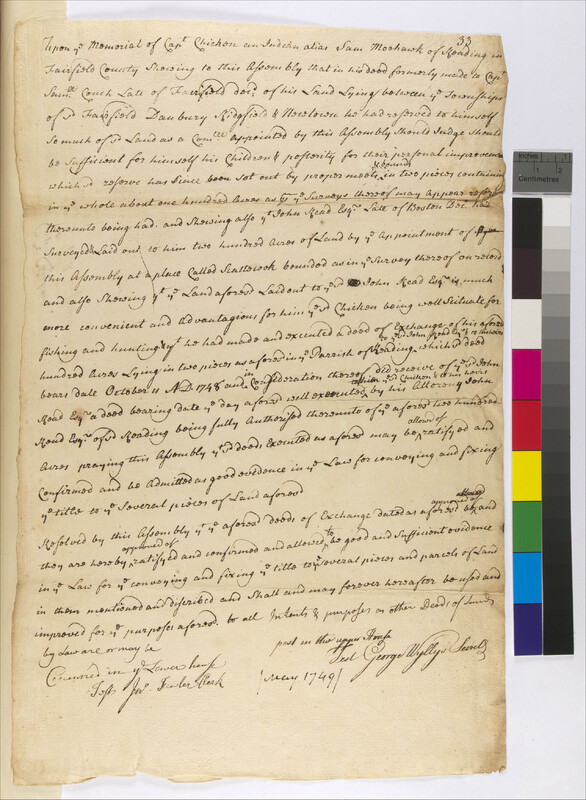 33
Upon ye Memorial of Capt Chicken an Indian alias Sam Moohawk of Reading in
Fairfield County Shewing to this Assembly that in his deed formerly made to Capt
Samll Couch Late of Fairfield decd of his Land Lying between ye Townships
of sd Fairfield Danbury Ridgfield & Newtown he had reserved to himself
so much of sd Land as a Comtee appointed by this Assembly Should Judge Should
be Sufficient for himself his Children & posterity for their personal improvement
which sd reserve has Since been set out by proper meets & bounds in two pieces containing
in ye whole about one hundred Acres as by ye Surveys thereof may Appear reference
thereunto being had. and Shewing also yt John Read Esqr Late of Boston Decd had
Surveyed & Laid out to him two hundred Acres of Land by ye Appointment of
this Assembly at a place Called Scattecook bounded as in ye Survey thereof on record
and also Shewing yt ye Land aforesd Laid out to ye sd John Read Esqr is much
more convenient and Advantagious for him ye sd Chicken being well Scituate for
fishing and hunting & yt he had made and executed a deed of Exchange of his aforesd
hundred Acres Lying in two pieces as aforesd in ye Parrish of Reading to ye sd John Read Esqr & to his heirs which sd deed
bears date October 11 AD. 1748 and in Consideration thereof did receive of ye sd John
Read Esqr a deed bearing date ye day aforesd well executed to him ye sd Chicken & to his heirs by his Attorney John
Read Esqr of sd Reading being fully Authorised thereunto of ye aforesd two hundred
Acres praying this Assembly yt sd deeds Executed as aforesd may be allowd of ratifyed and
Confirmed and be Admitted as good evidence in ye Law for conveying and fixing
ye title to ye Several pieces of Land aforesd
Resolved by this Assembly yt ye aforesd deeds of Exchange dated as aforesd be and
they are hereby approved of ratifyed and confirmed and allowed to be good and Sufficient evidence
in ye Law for ye conveying and fixing ye title to ye several pieces and parcels of Land
in them mentioned and discribed and Shall and may forever hereafter be used and
improved for ye purposes aforesd. to all Intents & purposes as other Deeds of Lands
by Law are or may be
past in the upper House
Test George Wyllys Secrety
Concurred in ye Lower house
Test Jno. Fowler Clerk
(May 1749)
Inches
Centimetres
1
2